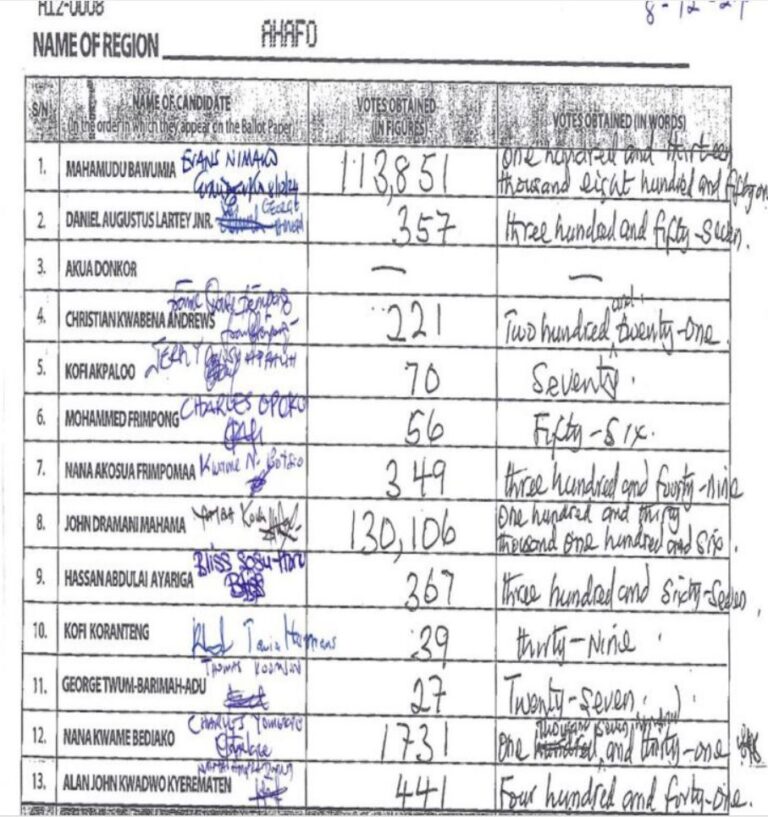 8-12-24
NAME OF REGION AHAFO
S/N
NAME OF CANDIDATE
(In the order in which they appear on the Ballot Paper)
VOTES OBTAINED
(IN FIGURES)
VOTES OBTAINED (IN WORDS)
1. MAHAMUDU BAWUMIA EVANS NIMAKO 113,851 One hundred and thirteen
thousand eight hundred and fifty one
2. DANIEL AUGUSTUS LARTEY JNR. GEORGE 357 three hundred and fifty-seven.
3. AKUA DONKOR — —
4. CHRISTIAN KWABENA ANDREWS 221 Two hundred and twenty-one.
5. KOFI AKPALOO 70 Seventy.
6. MOHAMMED FRIMPONG CHARLES OPOKU 56 Fifty-Six.
7. NANA AKOSUA FRIMPOMAA Kwame N. 349 three hundred and fourty-nine
8. JOHN DRAMANI MAHAMA 130,106 One hundred and thirty
thousand one hundred and six.
9. HASSAN ABDULAI AYARIGA Bliss 367 three hundred and sixty-seven
10. KOFI KORANTENG 39 thirty-Nine
11. GEORGE TWUM-BARIMAH-ADU THOMAS 27 Twenty-Seven.
12. NANA KWAME BEDIAKO CHARLES 1731 One thousand seven hundred and thirty-one
13. ALAN JOHN KWADWO KYEREMATEN 441 Four hundred and forty-one.